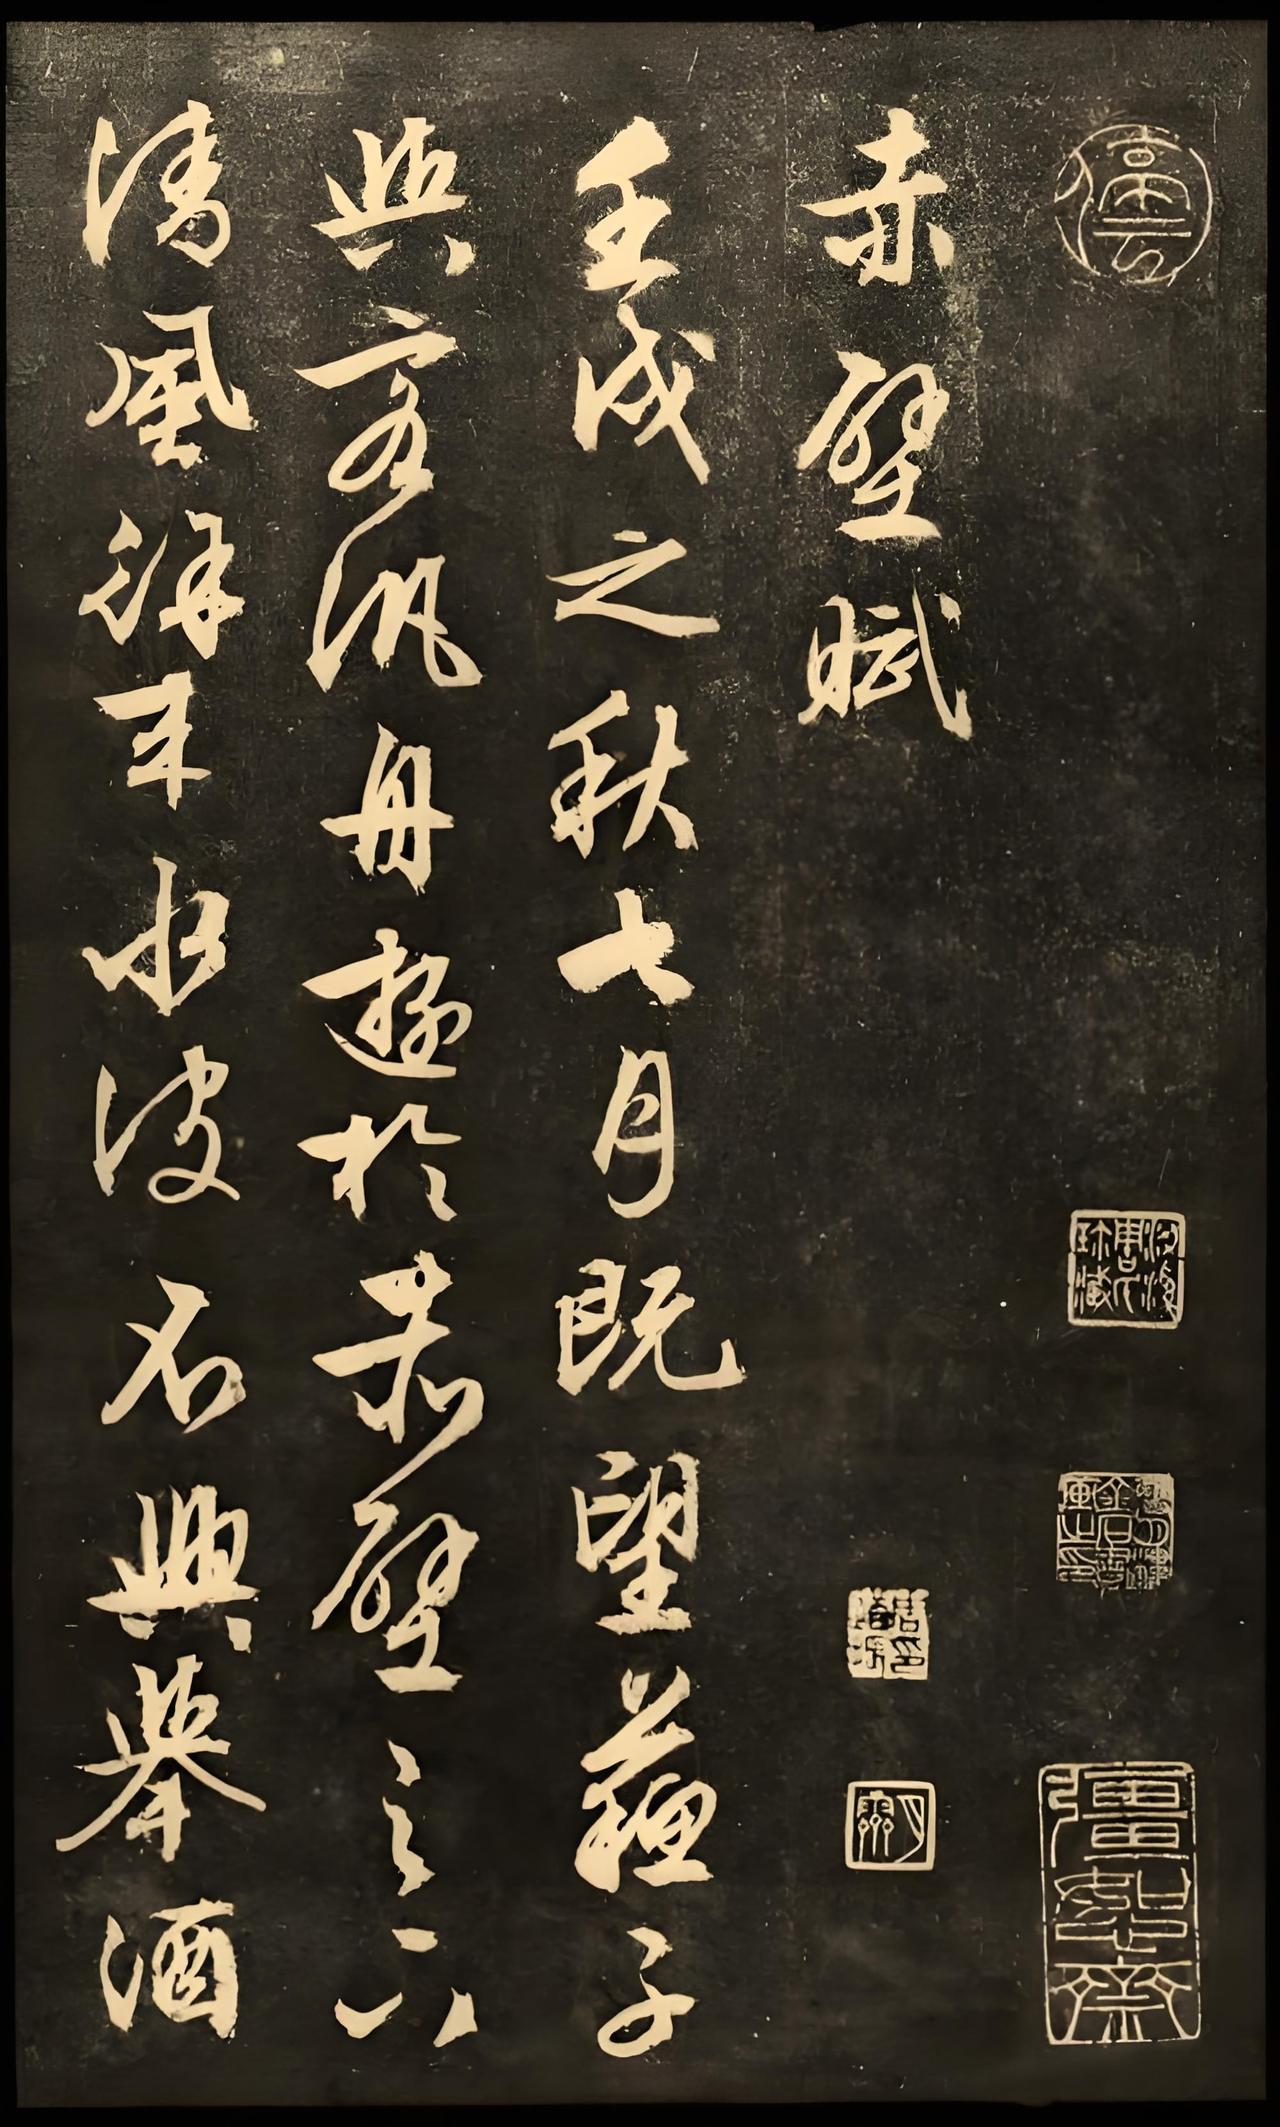 彊恕齋
赤壁賦
壬戌之秋七月既望蘇子
與客汎舟遊於赤壁之下
清風徐來水波不興舉酒